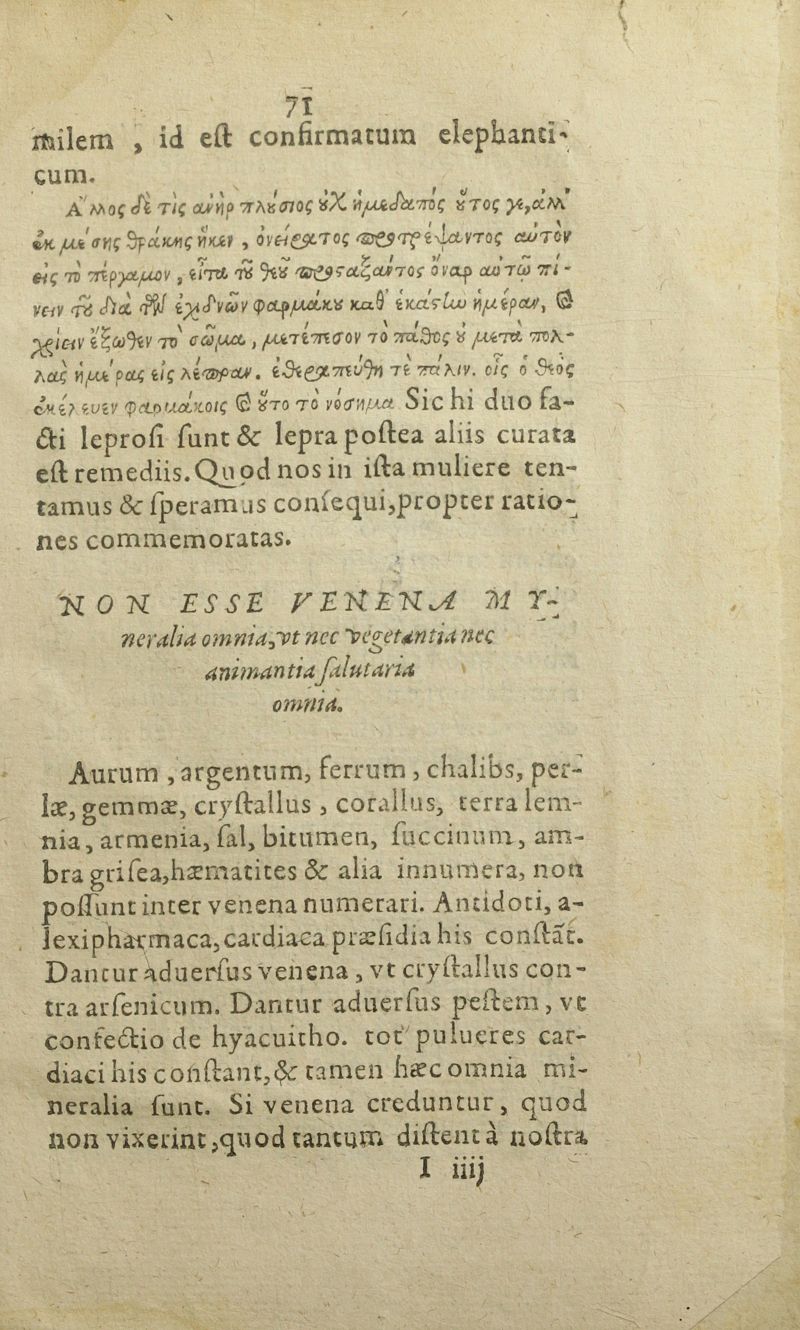 71
milem , id eſt confirmatum elephanti-
cum.
Ἄλλος δέ τις ἀνὴρ πλούσιος οὐχ ἡμεδαπὸς οὗτος γε, ἀλλ'
ἐκ μέσης Θρᾴκης ἧκεν , ὀνείρατος προτρέψαντος αὐτὸν
εἰς τὸ πέργαμον , εἶτα τοῦ θεοῦ προστάξαντος ὄναρ αὐτῷ πί-
νειν τοῦ διὰ τῶν ἐχιδνῶν φαρμάκου καθ' ἑκάστην ἡμέραν, καὶ
χρίειν ἔξωθεν τὸ σῶμα , μετέπεσον τὸ πάθος οὐ μετὰ πολ-
λὰς ἡμέρας εἰς λέπραν. ἐθεραπεύθη τε πάλιν. οἷς ὁ θεὸς
ἐκέλευεν φαρμάκοις καὶ οὗτο τὸ νόσημα Sic hi duo fa-
cti leproſi ſunt & lepra poſtea aliis curata
eſt remediis. Quod nos in iſta muliere ten-
tamus & ſperamus conſequi,propter ratio-
nes commemoratas.
NON ESSE VENENA MY-
neralia omnia,vt nec vegetantia nec
animantia ſalutaria
omnia.
Aurum , argentum, ferrum , chalibs, per-
læ, gemmæ, cryſtallus , corallus, terra lem-
nia , armenia, ſal, bitumen, ſuccinum , am-
bra griſea,hæmatites & alia innumera, non
poſſunt inter venena numerari. Antidoti, a-
lexipharmaca, cardiaca præſidia his conſtāt.
Dantur aduerſus venena , vt cryſtallus con-
tra arſenicum. Dantur aduerſus peſtem , vt
confectio de hyacuitho. tot pulueres car-
diaci his conſtant,& tamen hæc omnia mi-
neralia ſunt. Si venena creduntur, quod
non vixerint ,quod tantum diſtent à noſtra
I iiij